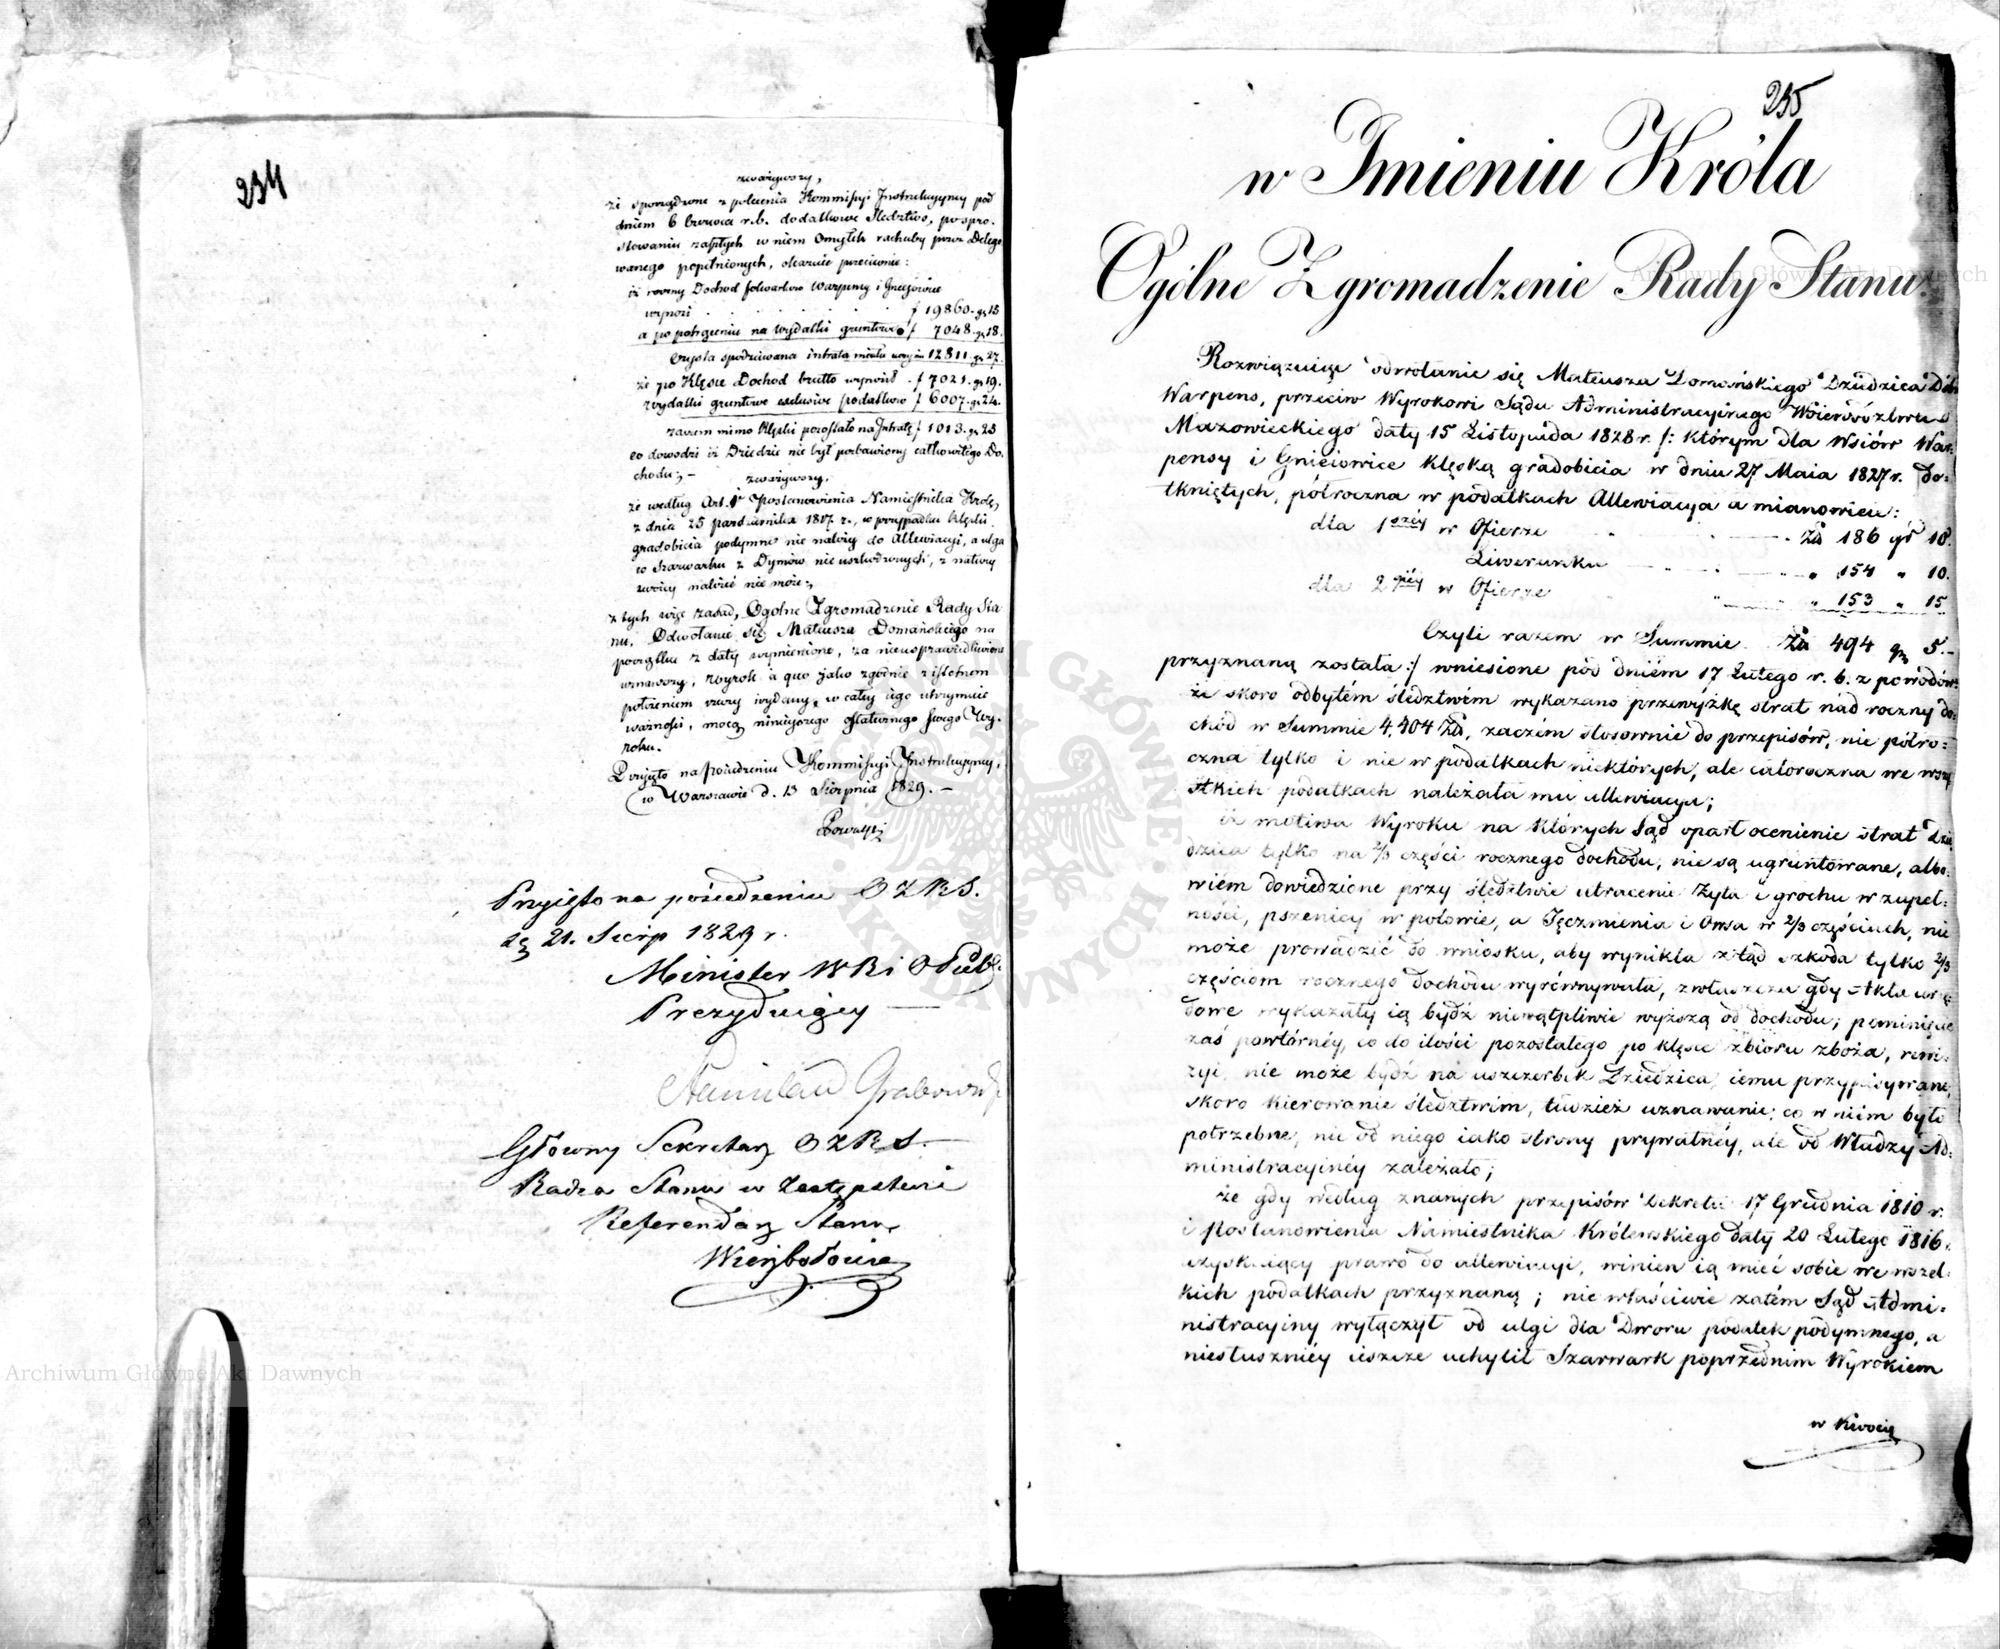 234
zważywszy,
że sporządzone z polecenia Kommissyi Instrukcyiney pod
dniem 6 Czerwca r.b. dodatkowe Śledztwo, po spro-
stowaniu zaszłych w niem Omyłek rachuby przez Delego
wanego popełnionych, okazuie przeciwnie:
iż roczny Dochod folwarków Warpensy i Gnieciowice
wynosi . . . . . . . f 19860. gr 15
a po potrąceniu na wydatki gruntowe f 7048. gr 18.
Czysta spodziewana intrata miała czynić 12811. gr 27.
że po Klęsce Dochod brutto wynosił . f 7021. gr 19.
wydatki gruntowe exclusive podatków f 6007. gr 24.
zatem mimo klęski pozostało na Intratę f 1013. gr 25
co dowodzi iż Dziedzic nie był pozbawiony całkowitego Do-
chodu; –
zważywszy,
że według Art. 1 Postanowienia Namiestnika Króle,
z dnia 25 października 1817 r., w przypadku klęski
gradobicia podymne nie należy do Allewiacyi, a ulga
w Szarwarku z Dymów nieuszkodzonych, z natury
rzeczy należeć nie może;
z tych więc zasad, Ogolne Zgromadzenie Rady Sta
nu, Odwołanie się Mateusza Domańskiego na
początku z daty wymienione, za nieusprawiedliwione
uznawszy, wyrok a quo jako zgodnie z istotnem
położeniem rzeczy wydany, w całey iego utrzymuie
ważności, mocą ninieyszego ostatecznego swego Wy-
roku.
Przyięto na posiedzeniu Kommissyi Instrukcyiney,
w Warszawie d. 13 Sierpnia 1829. –
Przyięto na posiedzeniu O Z R S.
dą 21. Sierp 1829 r.
Minister W R i O Publ:
Prezyduiący
Stanisław Grabowski
Główny Sekretarz O Z R S.
Radca Stanu w Zastępstwie
Referendarz Stanu
Wierzbołowicz
235
w Imieniu Króla
Ogólne Zgromadzenie Rady Stanu.
Rozwiązuiąc odwołanie się Mateusza Domońskiego Dziedzica Dóbr
Warpens, przeciw Wyrokowi Sądu Administracyinego Woiewództwa
Mazowieckiego daty 15 Listopada 1828 r. /: którym dla Wsiów War-
pensy i Gnieciowice klęską gradobicia w dniu 27 Maia 1827 r. do-
tkniętych, półroczna w podatkach Allewiacya a mianowicie:
dla 1széy w Ofierze . . Zł 186 gr 10.
Liwerunku . . „ 154 „ 10.
dla 2giéy w Ofierze „ „ 153 „ 15
Czyli razem w Summie Zł 494 gr 5.–
przyznaną została :/ wniesione pod dniem 17 Lutego r. b. z powodów:
że skoro odbytém śledztwém wykazano przewyżkę strat nad roczny do-
chód w Summie 4,404 Zł, zaczém stosownie do przepisów, nie półro-
czna tylko i nie w podatkach niektórych, ale całoroczna we wszy
stkich podatkach należała mu allewiacya;
iż motiwa Wyroku na których Sąd oparł ocenienie strat Dzie
dzica tylko na 2/3 części rocznego dochodu, nie są ugruntowane, albo-
wiem dowiedzione przy śledztwie utracenie Żyta i grochu w zupeł-
ności, pszenicy w połowie, a Jęczmienia i Owsa w 2/3 częściach, nie
może prowadzić do wniosku, aby wynikła ztąd szkoda tylko 2/3
częściom rocznego dochodu wyrównywała, zwłaszcza gdy Akta urzę
dowe wykazały ią bydź niewątpliwie wyższą od dochodu; pominięcie
zaś powtórnéy, co do ilości pozostałego po klęsce zbioru zboża, rewi-
zyi, nie może bydź na uszczerbek Dziedzica, iemu przypisywane,
skoro kierowanie śledztwém, tudzież uznawanie, co w niém było
potrzebne, nie od niego iako strony prywatnéy, ale od Władzy Ad-
ministracyinéy zależało;
że gdy według znanych przepisów Dekretu 17 Grudnia 1810 r.
i Postanowienia Namiestnika Królewskiego daty 20 Lutego 1816 r.
uzyskuiący prawo do allewiacyi, winien ią mieć sobie we wszel-
kich podatkach przyznaną; nie właściwie zatém Sąd Admi-
nistracyiny wyłączył od ulgi dla Dworu podatek podymnego, a
niesłuszniéy ieszcze uchylił Szarwark poprzednim Wyrokiem
w kwocie
Archiwum Główne Akt Dawnych
Archiwum Główne Akt Dawnych